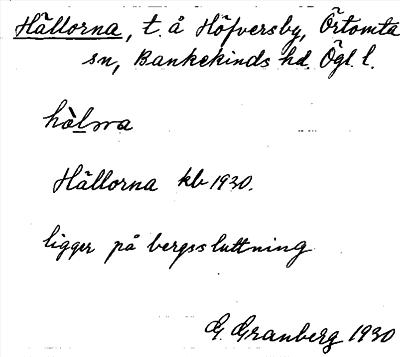 Hällorna, t. å Höfversby, Örtomta
sn, Bankekinds hd. Ögl. l.
hàlꞷrna
Hällorna kb 1930.
ligger på bergssluttning
G. Granberg 1930